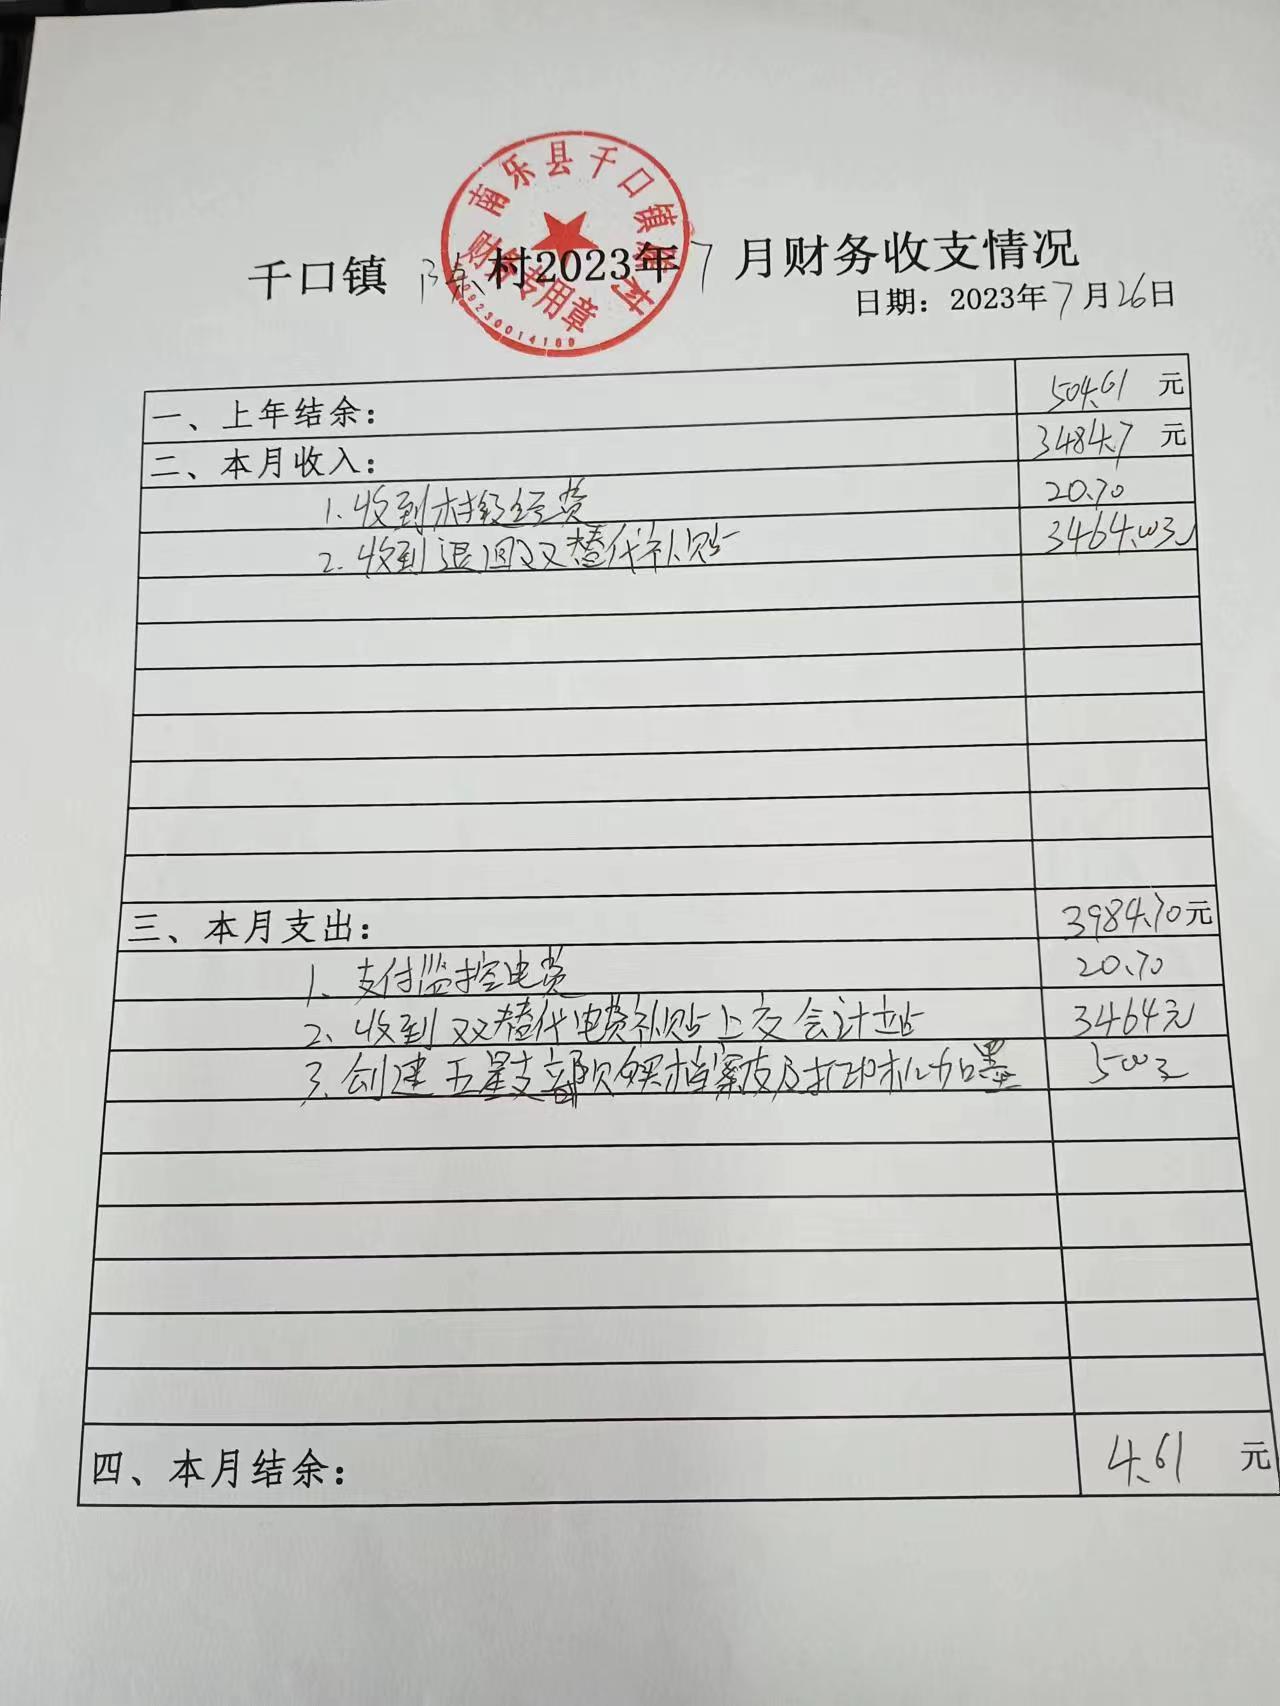 南乐县千口镇陈村
财务专用章
千口镇 陈 村2023年 7 月财务收支情况
日期：2023年7月26日
一、上年结余： 504.61 元
二、本月收入： 3484.7 元
1.收到村级经费 20.70
2.收到退回双替代补贴 3464.00元
三、本月支出： 3984.70元
1、支付监控电费 20.70
2、收到双替代电费补贴上交会计站 3464元
3.创建五星支部购买档案皮及打印机加墨 500元
四、本月结余： 4.61 元